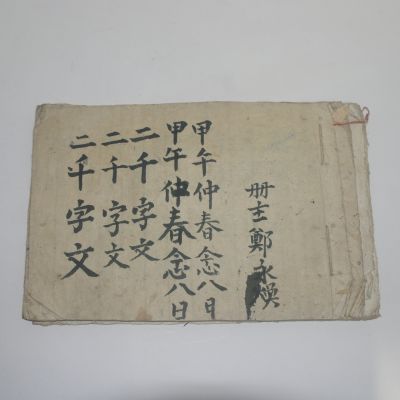 冊主 鄭永煥
甲午仲春念八日
甲午仲春念八日
二千字文
二千字文
二千字文